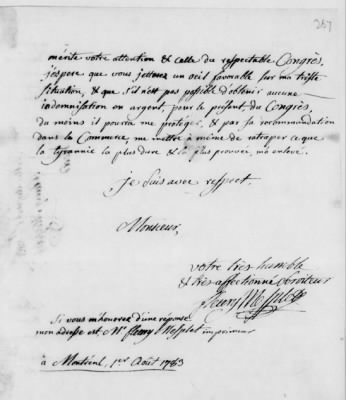 267
mérite votre attention & celle du respectable Congrès,
j'espere que vous jetterez un œil favorable sur ma triste
situation, & que s'il n'est pas possible d'obtenir aucune
indemnisation en argent, pour le présent du Congrès,
du moins il pourra me protéger, & par sa recommandation
dans le Commerce, me mettre à même de ratraper ce que
la tyrannie la plus dure & la plus prouvée, m'a enlevé.
je suis avec respect.
Monsieur,
votre très humble
& très affectionné Serviteur
fleury Mesplet
Si vous m'honorez d'une réponse
mon adresse est Mr. fleury Mesplet imprimeur
à Montréal, 1er Août 1783